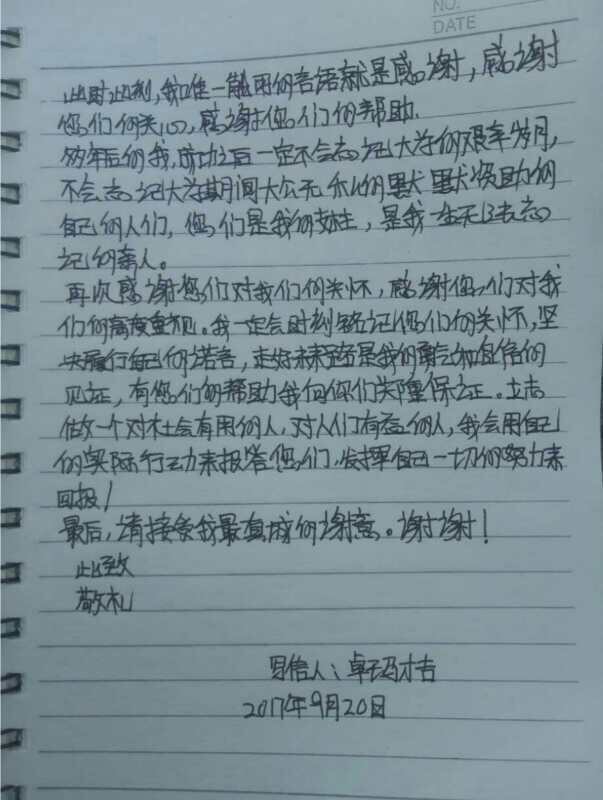 NO.
DATE
此时此刻,我唯一能用的言语就是感谢,感谢
您们的关心,感谢您们的帮助.
多年后的我,成功之后一定不会忘记大学的艰辛岁月,
不会忘记大学期间大公无私的默默资助的
自己的人们,您们是我的支柱,是我一生无法忘
记的亲人。
再次感谢您们对我们的关怀,感谢您们对我
们的高度重视。我一定会时刻铭记您们的关怀,坚
决履行自己的诺言,走好未来路是我们勇气和自信的
见证,有您们的帮助我向你们失隆保证。立志
做一个对社会有用的人,对人们有益的人,我会用自己
的实际行动来报答您们,发挥自己一切的努力来
回报!
最后,请接条我最真成的谢意。谢谢!
此致
敬礼
写信人:卓玛才吉
2017年9月20日